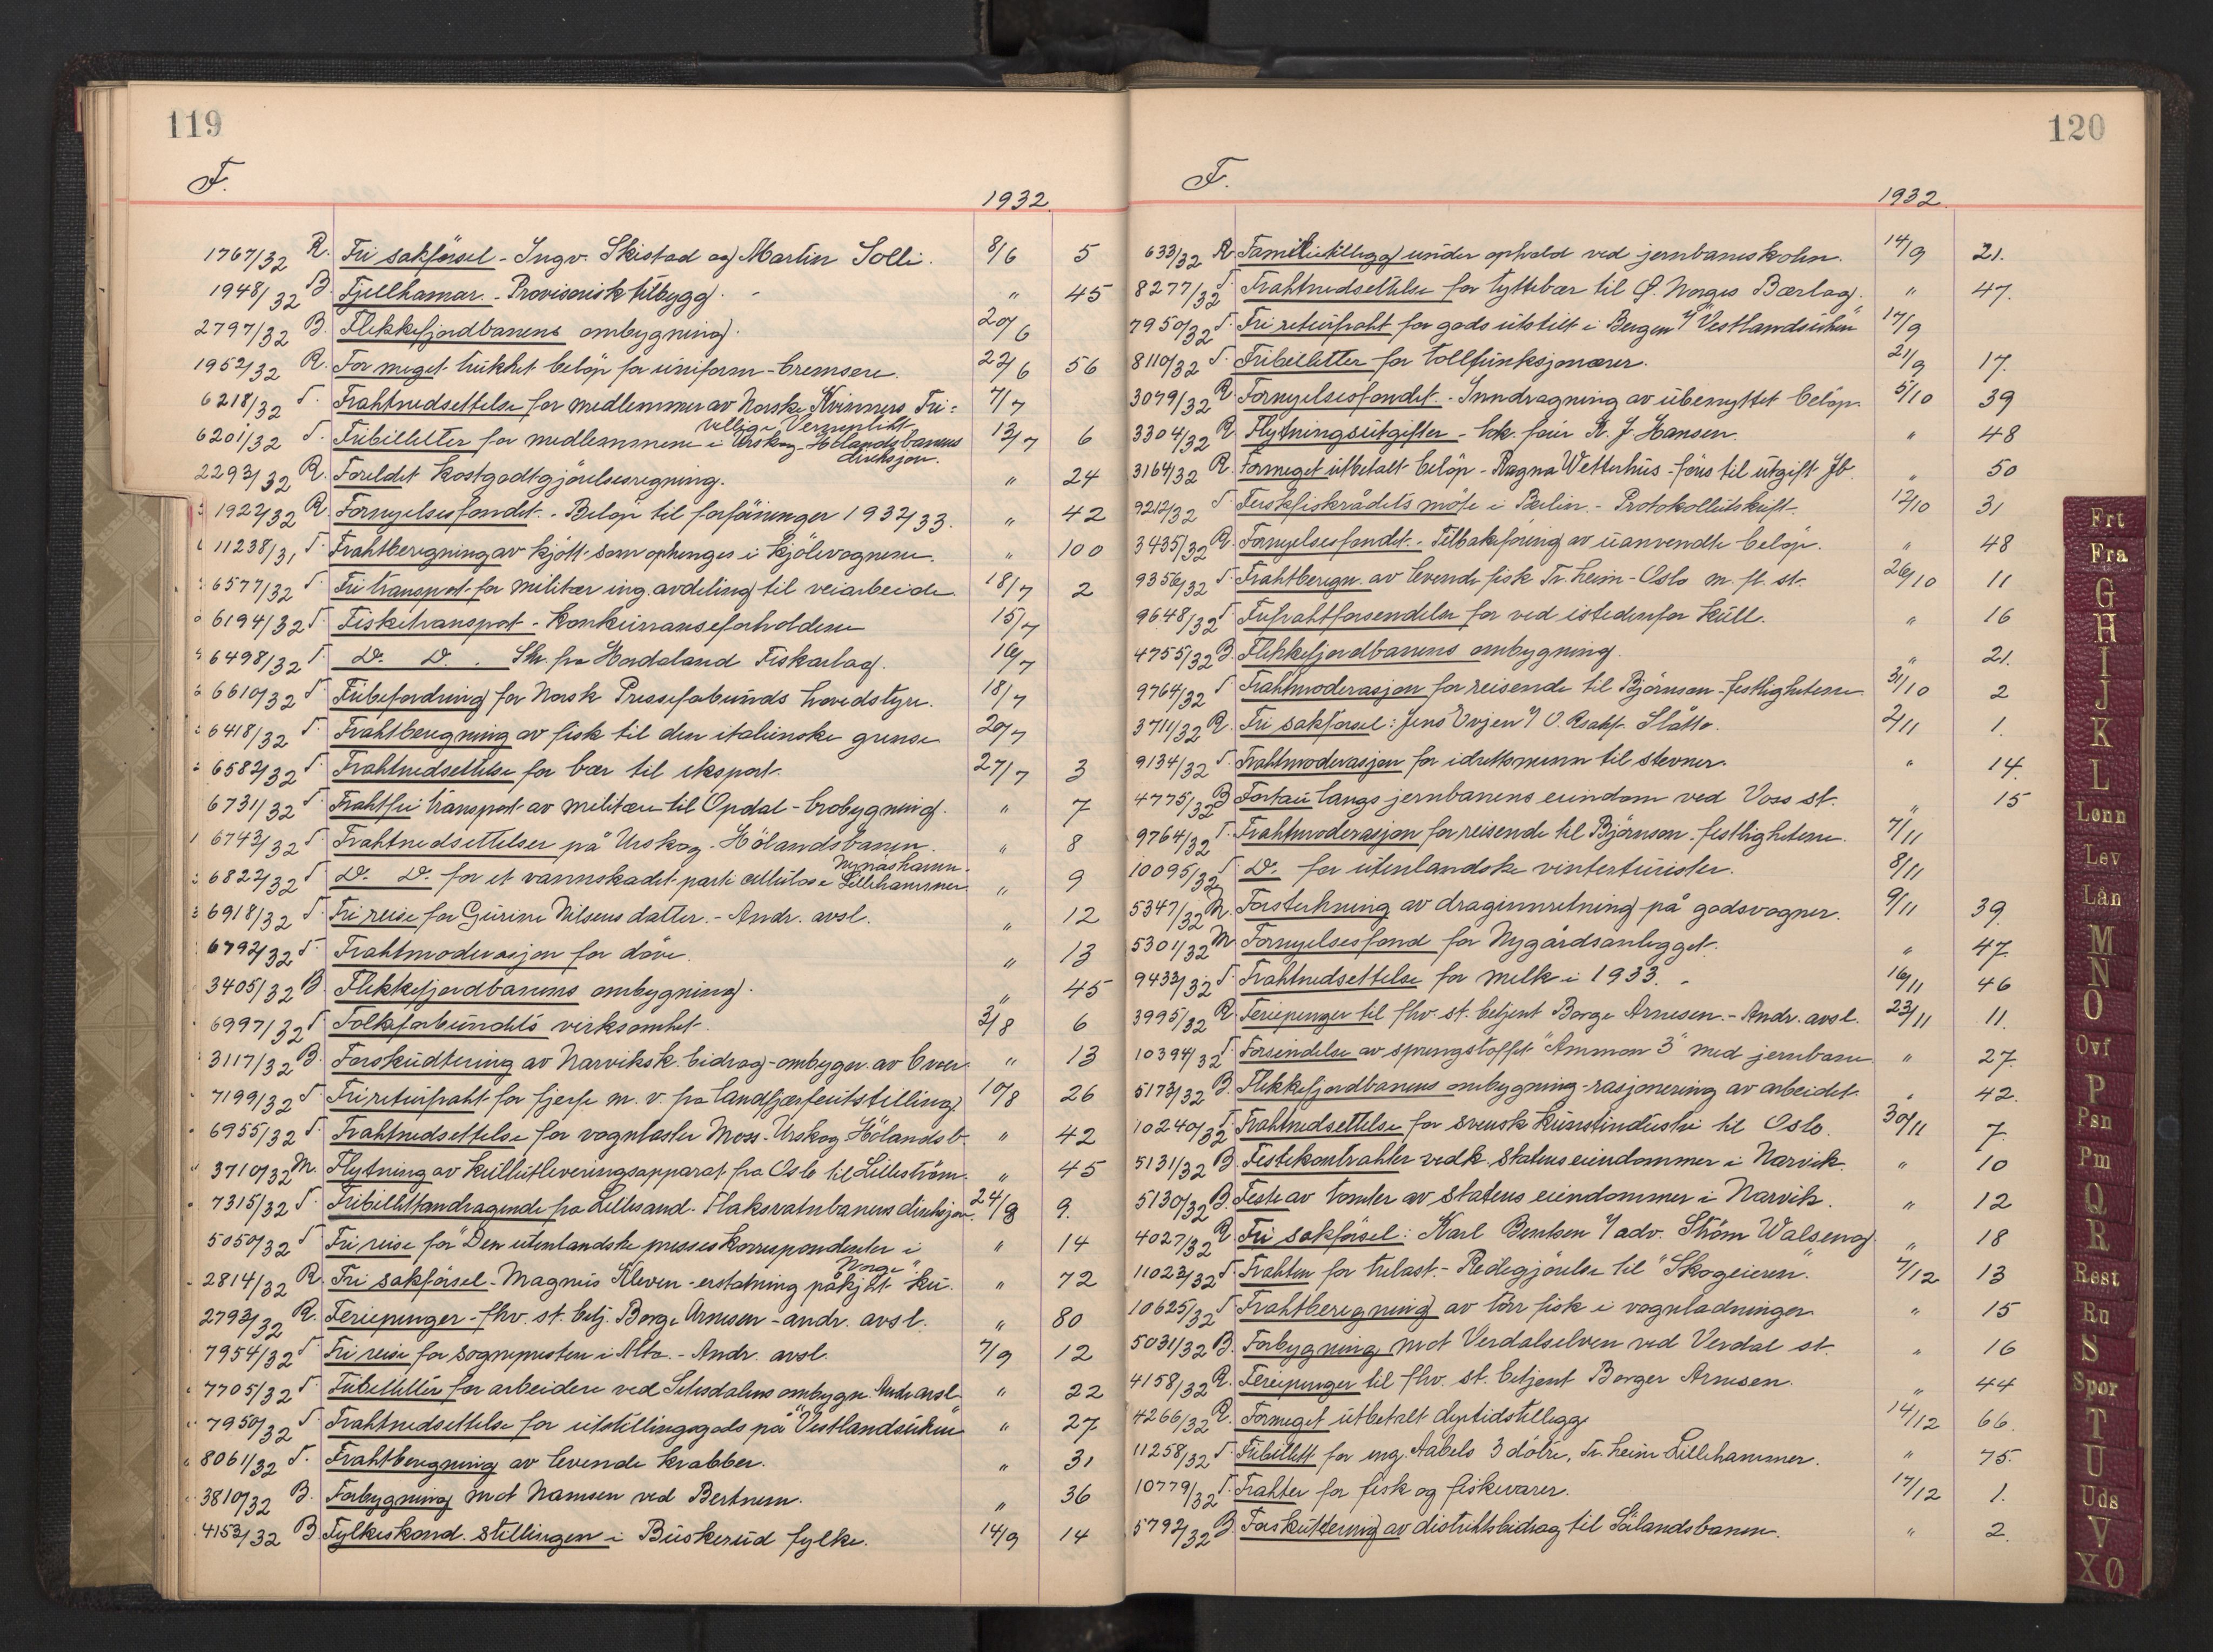 119
F.
1932.
1767/32 R. Fri sakförsel - Ingv. Skistad og Martin Solli. 8/6 5
1948/32 B. Fjellhamar - Provisorisk tilbygg. " 45
2797/32 B. Flekkefjordbanens ombygning. 20/6
1952/32 R. For meget trukket belöp for uniform - bremsere. 22/6 56
6218/32 T. Frahtnedsettelse for medlemmer av Norske Kvinners Fri-
villige Verneplikt 7/7
6201/32 T. Fribilletter for medlemmene i Urskog-Hölandsbanens
direksjon. 13/7 6
2293/32 R. Foreldet kostgodtgjörelsesregning. " 24
1922/32 R. Fornyelsesfondet. - Belöp til forföininger 1932/33. " 42
11238/31 T. Frahtberegning av kjött som ophenges i kjölevognene. " 100
6577/32 T. Fri transport for militær ing. avdeling til veiarbeide. 18/7 2
6194/32 T. Fisketransport - Konkurranseforholdene 15/7
6498/32 T. D. D. . Skr. fra Hordaland Fiskarlag. 16/7
6610/32 T. Fribefordring for Norsk Presseforbunds hovedstyre. 18/7
6418/32 T. Frahtberegning av fisk til den italienske grense 20/7
6582/32 T. Frahtnedsettelse for bær til eksport. 27/7 3
6731/32 T. Frahtfri transport av militære til Opdal - brobygning. " 7
6743/32 T. Frahtnedsettelser på Urskog-Hölandsbanen. " 8
6822/32 T. D. D. for et vannskadet parti cellulose Lillehammer
Nynäshamn. " 9
6918/32 T. Fri reise for Gurine Nilsens datter. - Andr. avsl. " 12
6792/32 T. Frahtmoderasjon for döve. " 13
3405/32 B. Flekkefjordbanens ombygning. " 45
6997/32 T. Folkeforbundets virksomhet. 3/8 6
3117/32 B. Forskudtering av Narviksk. bidrag - ombygn. av broer. " 13
7199/32 T. Fri returfraht for fjerfe m.v. fra landsfjærfeutstilling. 10/8 26
6955/32 T. Frahtnedsettelse for vognlaster Moss - Urskog Hölandsb. " 42
3710/32 M. Flytning av kullutleveringsapparat fra Oslo til Lilleström. " 45
7315/32 T. Fribillettandragende fra Lillesand-Flaksvatnbanens direksjon. 24/8 9.
5050/32 T. Fri reise for "Den utenlandske presses korrespondenter i
Norge". " 14
2814/32 R. Fri sakförsel - Magnus Kleven - erstatning påkjört ku. " 72
2793/32 R. Feriepenger - fhv. st. betj. Borge Arnesen - andr. avsl. " 80
7954/32 T. Fri reise for sognepresten i Alta. - Andr. avsl. 7/9 12
7705/32 T. Fribilletter for arbeidere ved Setesdalens ombygn. Andr. avsl. " 22
7950/32 T. Frahtnedsettelse for utstillingsgods på "Vestlandsuken" " 27
8061/32 T. Frahtberegning av levende krabber. " 31
3810/32 B. Forbygning mot Namsen ved Bertnem. " 36
4153/32 B. Fylkeskond. stillingen i Buskerud fylke. 14/9 14
120
F.
1932.
633/32 R. Familietillegg under ophold ved jernbaneskolen. 14/9 21.
8277/32 T. Frahtnedsettelse for tyttebær til Ö. Norges Bærlag. " 47.
7950/32 T. Fri returfraht for gods utstilt i Bergen v/ "Vestlandsuken" 17/9
8110/32 T. Fribilletter for tollfunksjonærer. 21/9 17.
3079/32 R. Fornyelsesfondet. - Inndragning av ubenyttet belöp. 5/10 39
3304/32 R. Flytningsutgifter - lok. före K. J. Hansen. " 48
3164/32 R. Formeget utbetalt belöp - Ragna Wetterhus - föres til utgift Jb. " 50
9212/32 T. Ferskfiskrådets möte i Berlin. - Protokollutskrift. 12/10 31
3435/32 R. Fornyelsesfondet. - Tilbakeföring av uanvendte belöp. " 48
9356/32 T. Frahtberegn. av levende fisk Tr.heim - Oslo m. fl. st. 26/10 11
9648/32 T. Frifrahtforsendelse for ved istedenfor kull. " 16
4755/32 B. Flekkefjordbanens ombygning. " 21.
9764/32 T. Frahtmoderasjon for reisende til Björnson-festlighetene. 31/10 2
3711/32 R. Fri sakförsel: Jens Evjen v/ O.R.sakf. Slåtto. 2/11 1.
9134/32 T. Frahtmoderasjon for idrettsmenn til stevner. " 14.
4775/32 B. Fortau langs jernbanens eiendom ved Voss st. " 15
9764/32 T. Frahtmoderasjon for reisende til Björnson-festlighetene. 7/11
10095/32 T. D. for utenlandske vinterturister. 8/11
5347/32 M. Forsterkning av draginnretning på godsvogner. 9/11 39.
5301/32 M. Fornyelsesfond for Nygårdsanlegget. " 47.
9433/32 T. Frahtnedsettelse for melk i 1933. 16/11 46
3995/32 R. Feriepenger til fhv. st. betjent Borge Arnesen. - Andr. avsl. 23/11 11.
10394/32 T. Forsendelse av sprengstoffet "Ammon 3" med jernbane " 27.
5173/32 B. Flekkefjordbanens ombygning - rasjonering av arbeidet. " 42.
10240/32 T. Frahtnedsettelse for svensk kunstindustri til Oslo. 30/11 7.
5131/32 B. Festekontrakter vedk. statens eiendommer i Narvik. " 10
5130/32 B. Feste av tomter av statens eiendommer i Narvik. " 12
4027/32 R. Fri sakförsel: Karl Bentsen v/ adv. Ström Walseng " 18
11023/32 T. Frahten for trelast. - Redegjörelse til "Skogeieren". 7/12 13
10625/32 T. Frahtberegning av törr fisk i vognladninger. " 15
5031/32 B. Forbygning mot Verdalselven ved Verdal st. " 16
4158/32 R. Feriepenger til fhv. st. betjent Borger Arnesen. " 44
4266/32 R. Formeget utbetalt dyrtidstillegg 14/12 66.
11258/32 T. Fribillett for ing. Aabels 3 dötre, Tr.heim Lillehammer. " 75.
10779/32 T. Frahter for fisk og fiskevarer. 17/12 1.
5792/32 B. Forskuttering av distriktsbidrag til Sölandsbanen. " 2.
Frt
Fra
G
H
I
J
K
L
Lønn
Lev
Lån
M
N
O
Ovf
P
Psn
Pm
Q
R
Rest
Ru
S
Spor
T
U
Uds
V
XØ